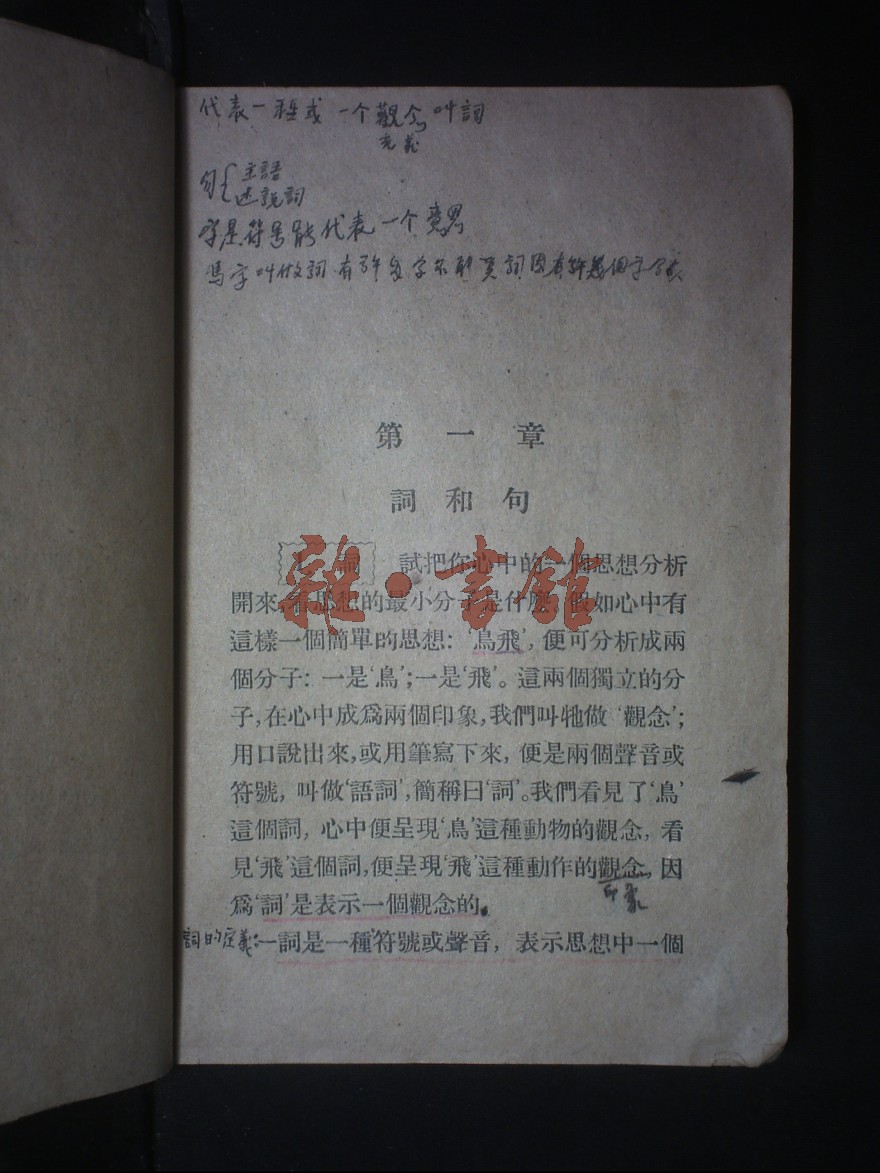 代表一種或一个觀念叫詞
意義
句{主語
述說詞
字是符号能代表一个意思
有許多字不
第一章
詞和句
1. 詞　試把你心中的一個思想分析
開來，看思想的最小分子是什麼。假如心中有
這樣一個簡單的思想：‘鳥飛’，便可分析成兩
個分子：一是‘鳥’；一是‘飛’。這兩個獨立的分
子，在心中成爲兩個印象，我們叫牠做‘觀念’；
用口說出來，或用筆寫下來，便是兩個聲音或
符號，叫做‘語詞’，簡稱曰‘詞’。我們看見了‘鳥’
這個詞，心中便呈現‘鳥’這種動物的觀念，看
見‘飛’這個詞，便呈現‘飛’這種動作的觀念，因
印象
爲‘詞’是表示一個觀念的。
詞的定義：一詞是一種符號或聲音，表示思想中一個
雜·書館